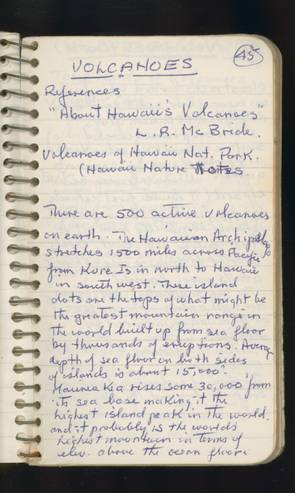 45
VOLCANOES
References
"About Hawaii's Volcanoes"
L. R. McBride.
Volcanoes of Hawaii Nat. Park.
(Hawaii Nature Notes
There are 500 active volcanoes
on earth. The Hawaiian Archipelago
stretches 1500 miles across Pacific
from Kure Is in north to Hawaii
in south west. These island
dots are the tops of what might be
the greatest mountain range in
the world built up from sea floor
by thousands of eruptions. Average
depth of sea floor on both sides
of islands is about 15,000'.
Maunea Kia rises some 30,000' from
its sea base making it the
highest island peak in the world.
and it probably is the worlds
highest mountain in terms of
elev. above the ocean floor.